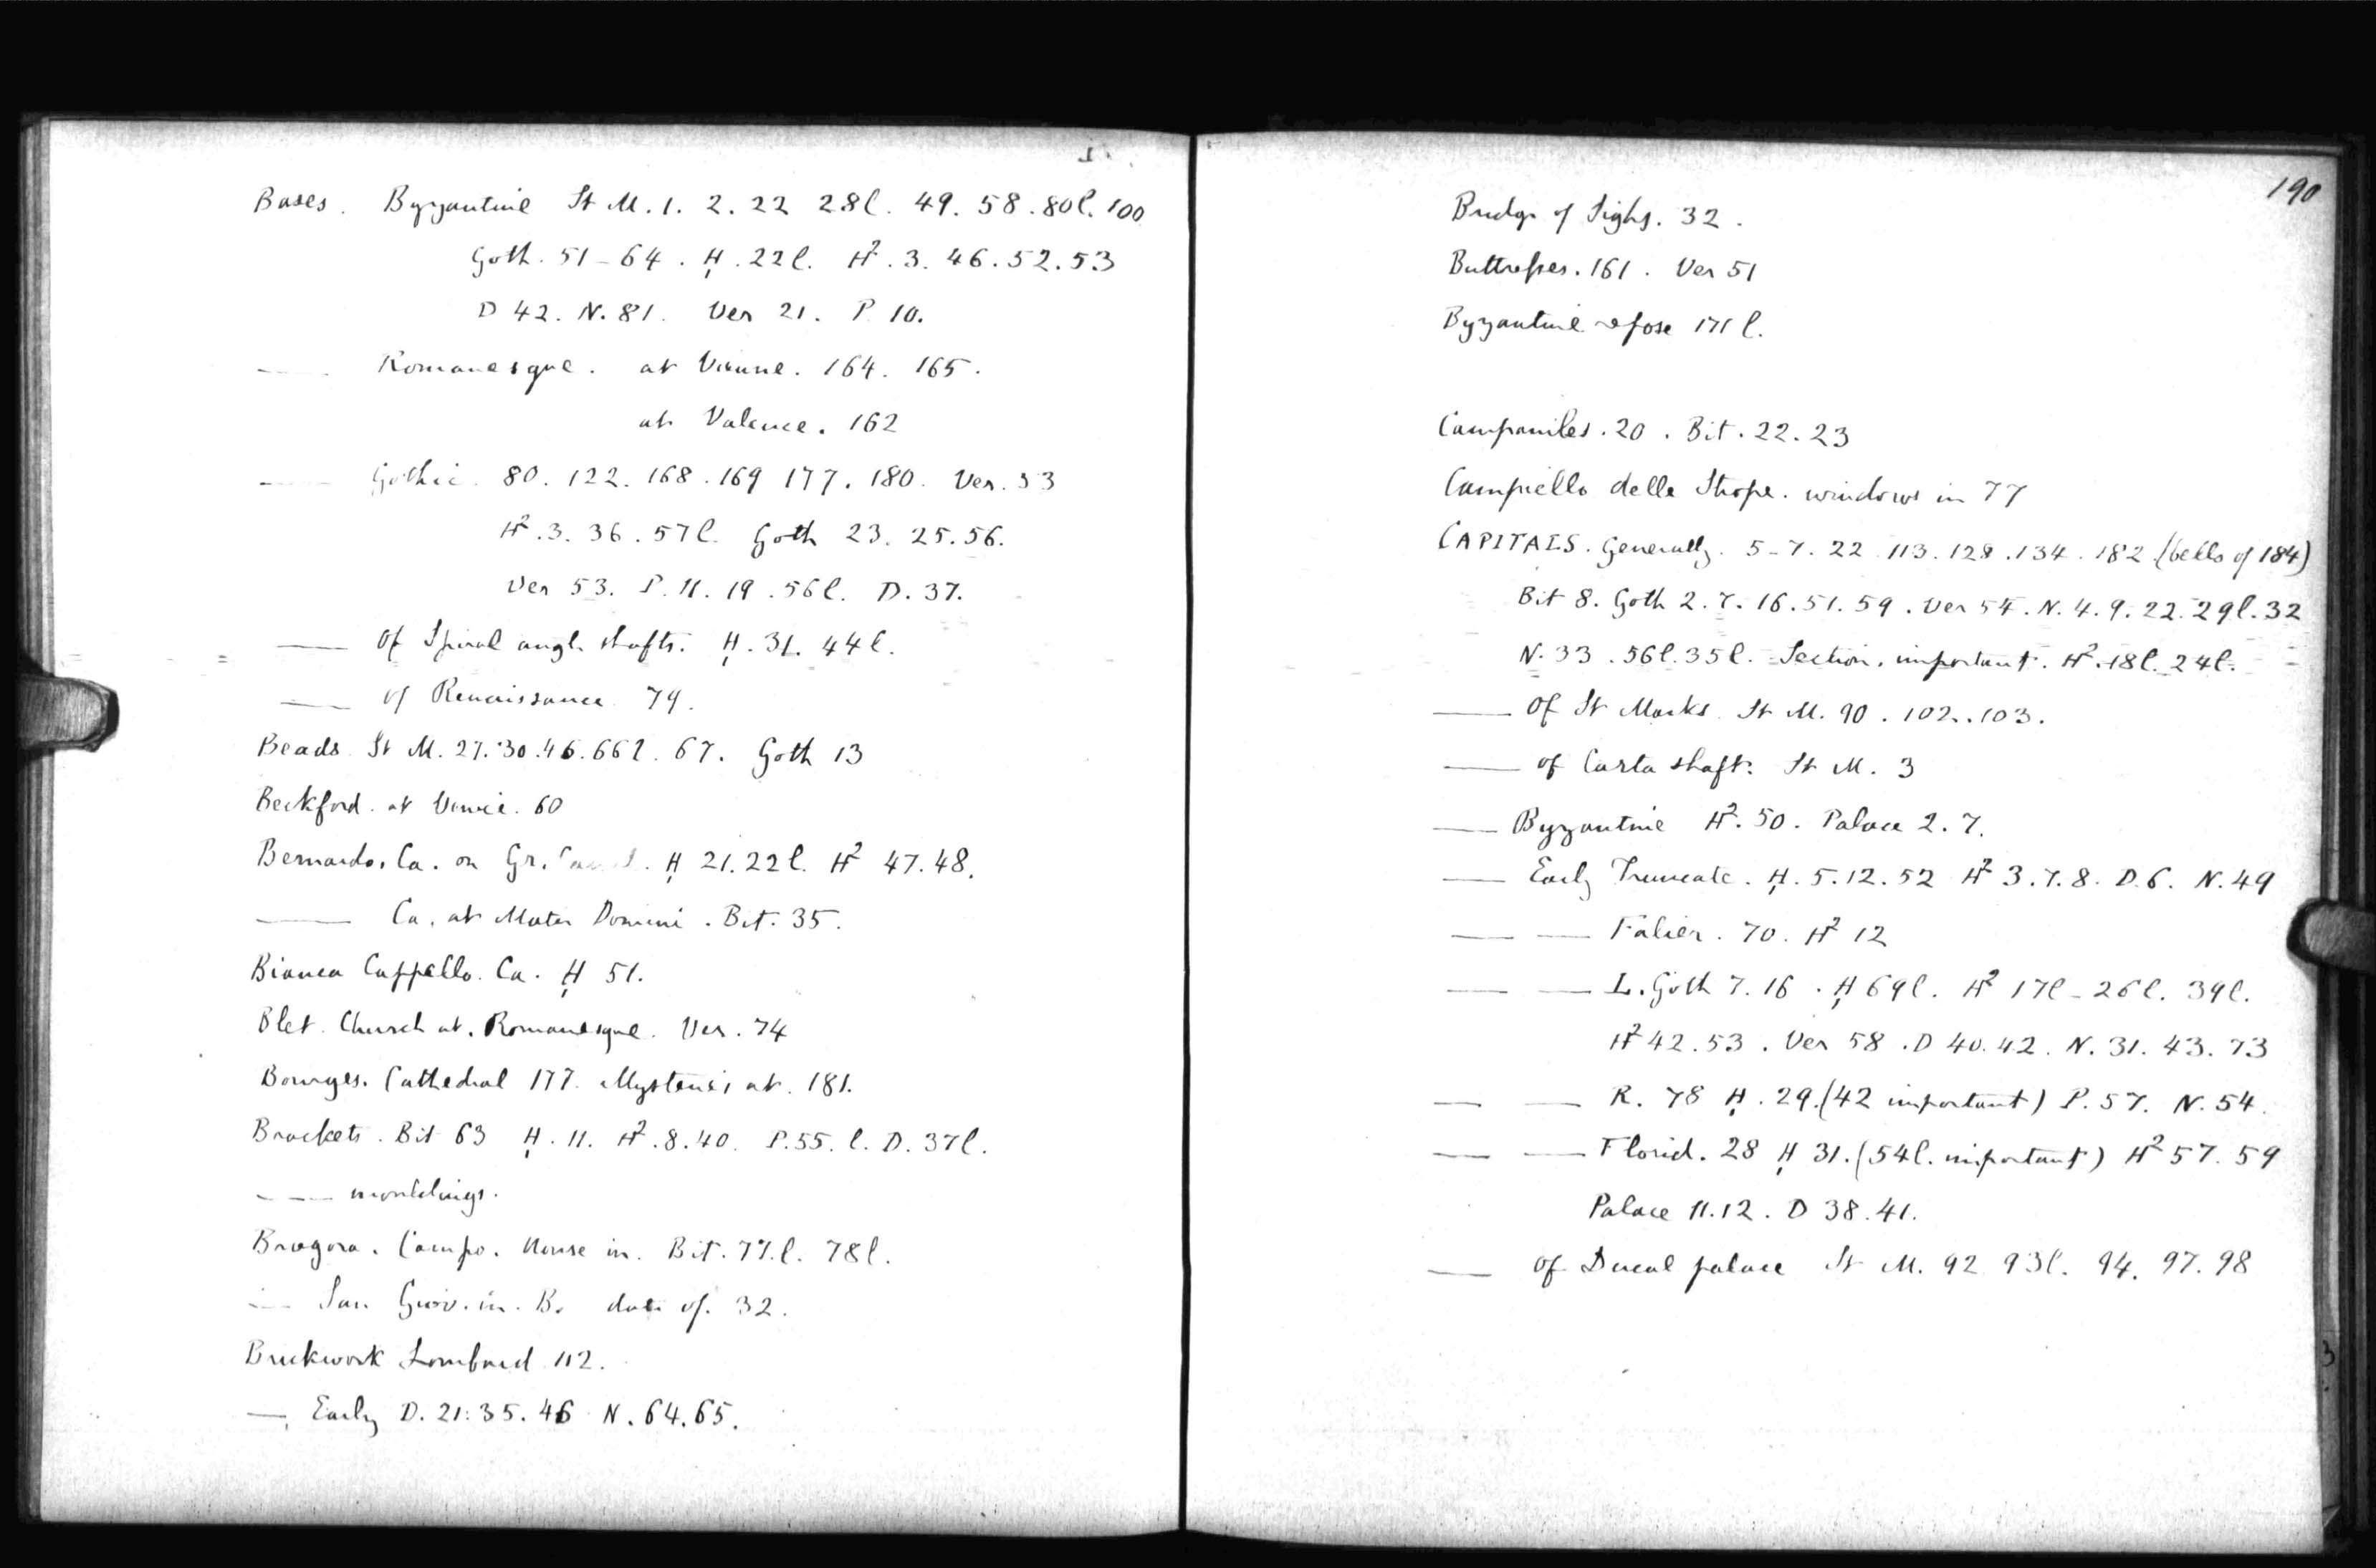 Bases. Byzantine St M. 1. 2. 22 28l. 49. 58. 80l. 100
Goth. 51-64. H. 22l. H2. 3. 46. 52. 53
D 42. N. 81. Ver 21. P 10.
—— Romanesque. at Vienne. 164. 165.
at Valence. 162
—— Gothic. 80. 122. 168. 169 177. 180. Ver. 53
H2. 3. 36. 57l. Goth 23. 25. 56.
Ver 53. P. 11. 19. 56l. D. 37.
—— Of Spiral angle shafts. H. 31. 44l.
—— of Renaissance 79.
Beads St M. 27. 30. 46. 66l. 67. Goth 13
Beckford. at Venice. 60
Bernardo. Ca. on Gr. Canal. H 21. 22l. H2 47. 48.
—— Ca. at Mater Domini. Bit. 35.
Bianca Cappello. Ca. H 51.
Blet. Church at. Romanesque. Ver. 74
Bourges. Cathedral 177. Mysteries at. 181.
Brackets. Bit 63 H. 11. H2. 8. 40. P. 55. l. D. 37l.
—— mouldings.
Bragora. Campo. House in. Bit. 77. l. 78l.
—— San Giov. in. B. date of. 32.
Brickwork Lombard 112.
—. Early D. 21: 35. 46 N. 64. 65.
190
Bridge of Sighs. 32.
Buttresses. 161. Ver 51
Byzantine repose 171 l.
Campaniles. 20. Bit. 22. 23
Campiello delle Strope. windows in 77
CAPITALS. Generally. 5-7. 22 113. 128. 134. 182. (bells of 184)
Bit 8. Goth 2. 7. 16. 51. 59. Ver 54. N. 4. 9. 22. 29l. 32
N. 33. 56l. 35l. Section, important. H2. 18l. 24l.
—— Of St Marks. St M. 90. 102. 103.
—— of Carta shaft: St M. 3
—— Byzantine H2. 50. Palace 2. 7.
—— Early Truncate. H. 5. 12. 52 H2 3. 7. 8. D. 6. N. 49
—— —— Falier. 70. H2 12
—— —— L. Goth 7. 16. H 69l. H2 17l-26l. 39l.
H2 42. 53. Ver 58. D 40. 42. N. 31. 43. 73
—— —— R. 78 H. 29. (42 important) P. 57. N. 54.
—— —— Florid. 28 H 31. (54l. important) H2 57. 59
Palace 11. 12. D 38. 41.
—— Of Ducal palace St M. 92 93l. 94. 97. 98